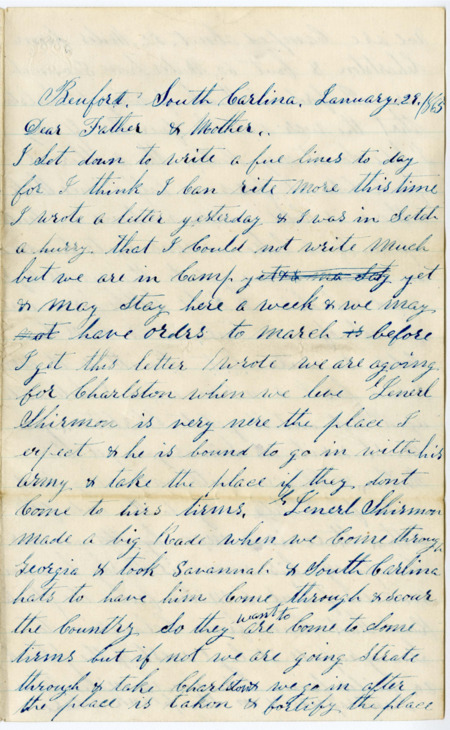 Beuford. South Carlina. January. 29. /1865
Dear Father & Mother..
I Set down to write a fue lines to day
for I think I Can rite more this time
I wrote a letter yesterday & I was in Setch
a hurry. that I Could not write much
but we are in Camp yet & yet
& may Stay here a week & we may
not have ordrs to march is before
I get this letter wrote we are agoing
for Charlston when we leve Generl
Shirmon is very nere the place I
expect & he is bound to go in with his
army & take the place if they dont
Come to hirs tirms. Generl Shirmon
made a big Rade when we Come through
Georgia & took Savannah & South Carlina
hats to have him Come through & scour
the Country So they want to
are Come to Some
tirms but if not we are going Strate
through & take Charlston & we go in after
the place is takon & fortify the place